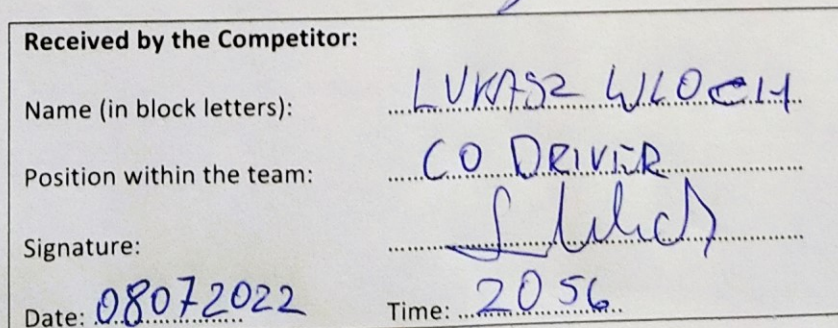 Received by the Competitor:
Name (in block letters): LUKASZ WLOCH
Position within the team: CO DRIVER
Signature:
Date: 08072022 Time: 2056